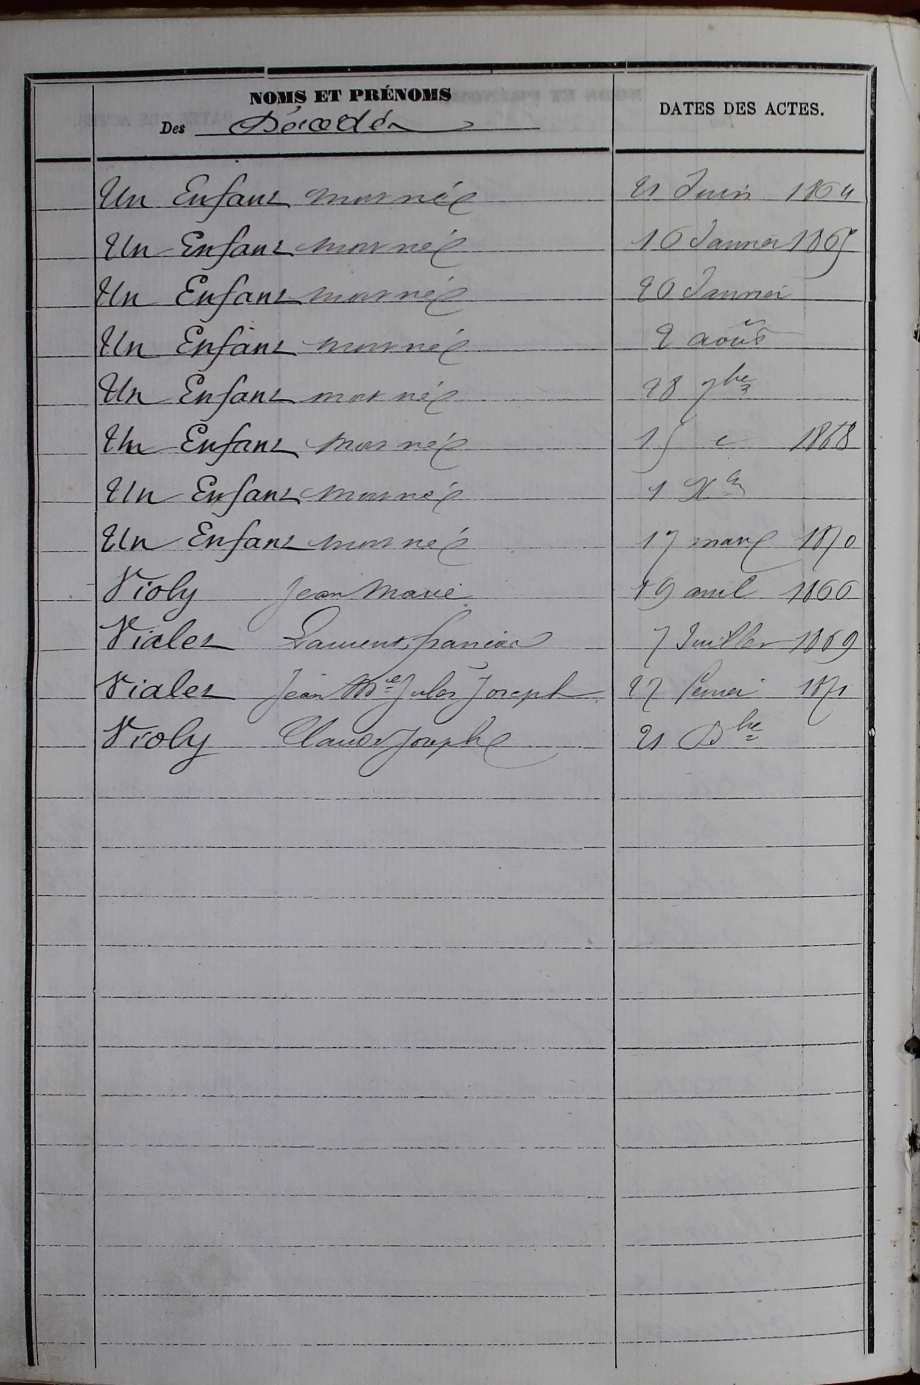 NOMS ET PRÉNOMS
Des Décédés
DATES DES ACTES.
Un Enfant mort né 21 Juin 1864
Un Enfant mort né 16 Janvier 1865
Un Enfant mort né 20 Janvier
Un Enfant mort né 2 août
Un Enfant mort né 28 7bre
Un Enfant mort né 15 1868
Un Enfant mort né 1 Xbre
Un Enfant mort né 17 mars 1870
Violy Jean Marie 19 avril 1866
Vialet Laurent francois 7 Juillet 1869
Vialet Jean Mie Jules Joseph 27 fevrier 1871
Violy Claude Joseph 21 Dbre